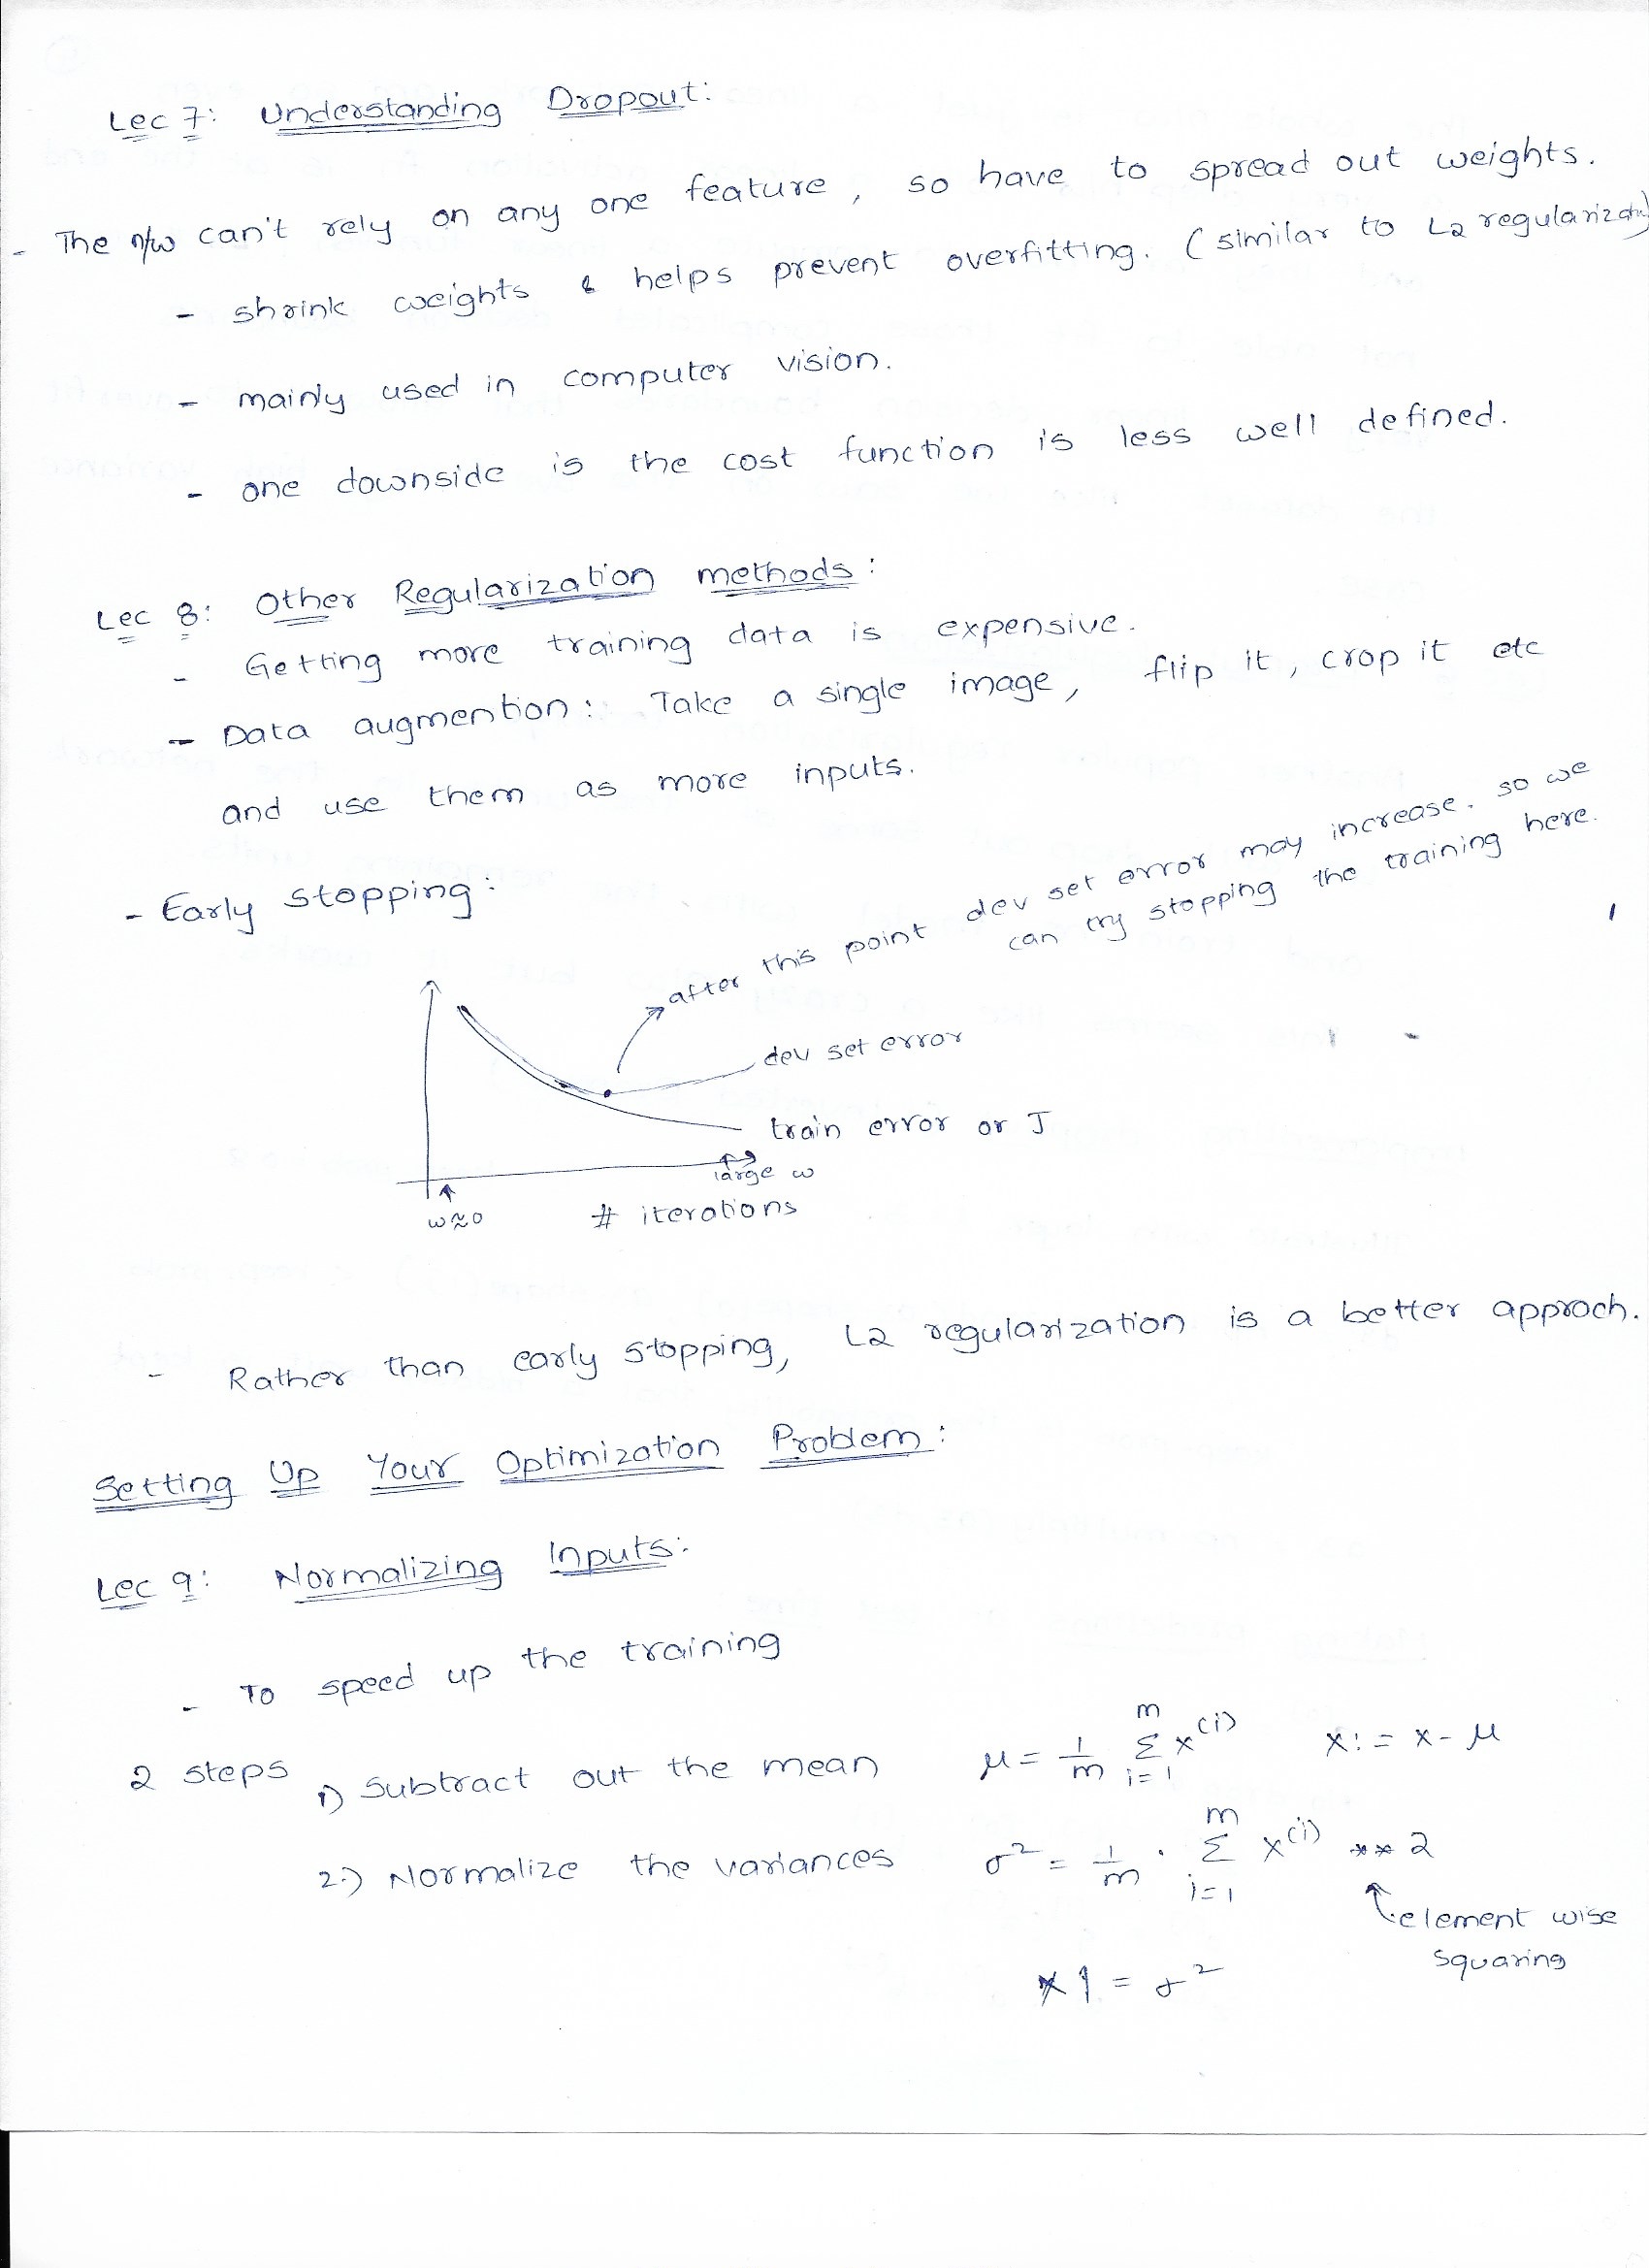 Lec 7: Understanding Dropout:
- The n/w can't rely on any one feature, so have to spread out weights.
- shrink weights & helps prevent overfitting. (similar to L2 regularization)
- mainly used in computer vision.
- one downside is the cost function is less well defined.
Lec 8: Other Regularization methods:
- Getting more training data is expensive.
- Data augmention: Take a single image, flip it, crop it etc
and use them as more inputs.
- Early stopping:
after this point dev set error may increase. so we
can try stopping the training here.
dev set error
train error or J
large w
w≈0
# iterations
- Rather than early stopping, L2 regularization is a better approch.
Setting Up Your Optimization Problem:
Lec 9: Normalizing Inputs:
- To speed up the training
2 steps 1) Subtract out the mean μ = 1/m Σ_{i=1}^{m} x^(i) x := x - μ
2.) Normalize the variances σ² = 1/m · Σ_{i=1}^{m} x^(i) ** 2
element wise
squaring
x /= σ²